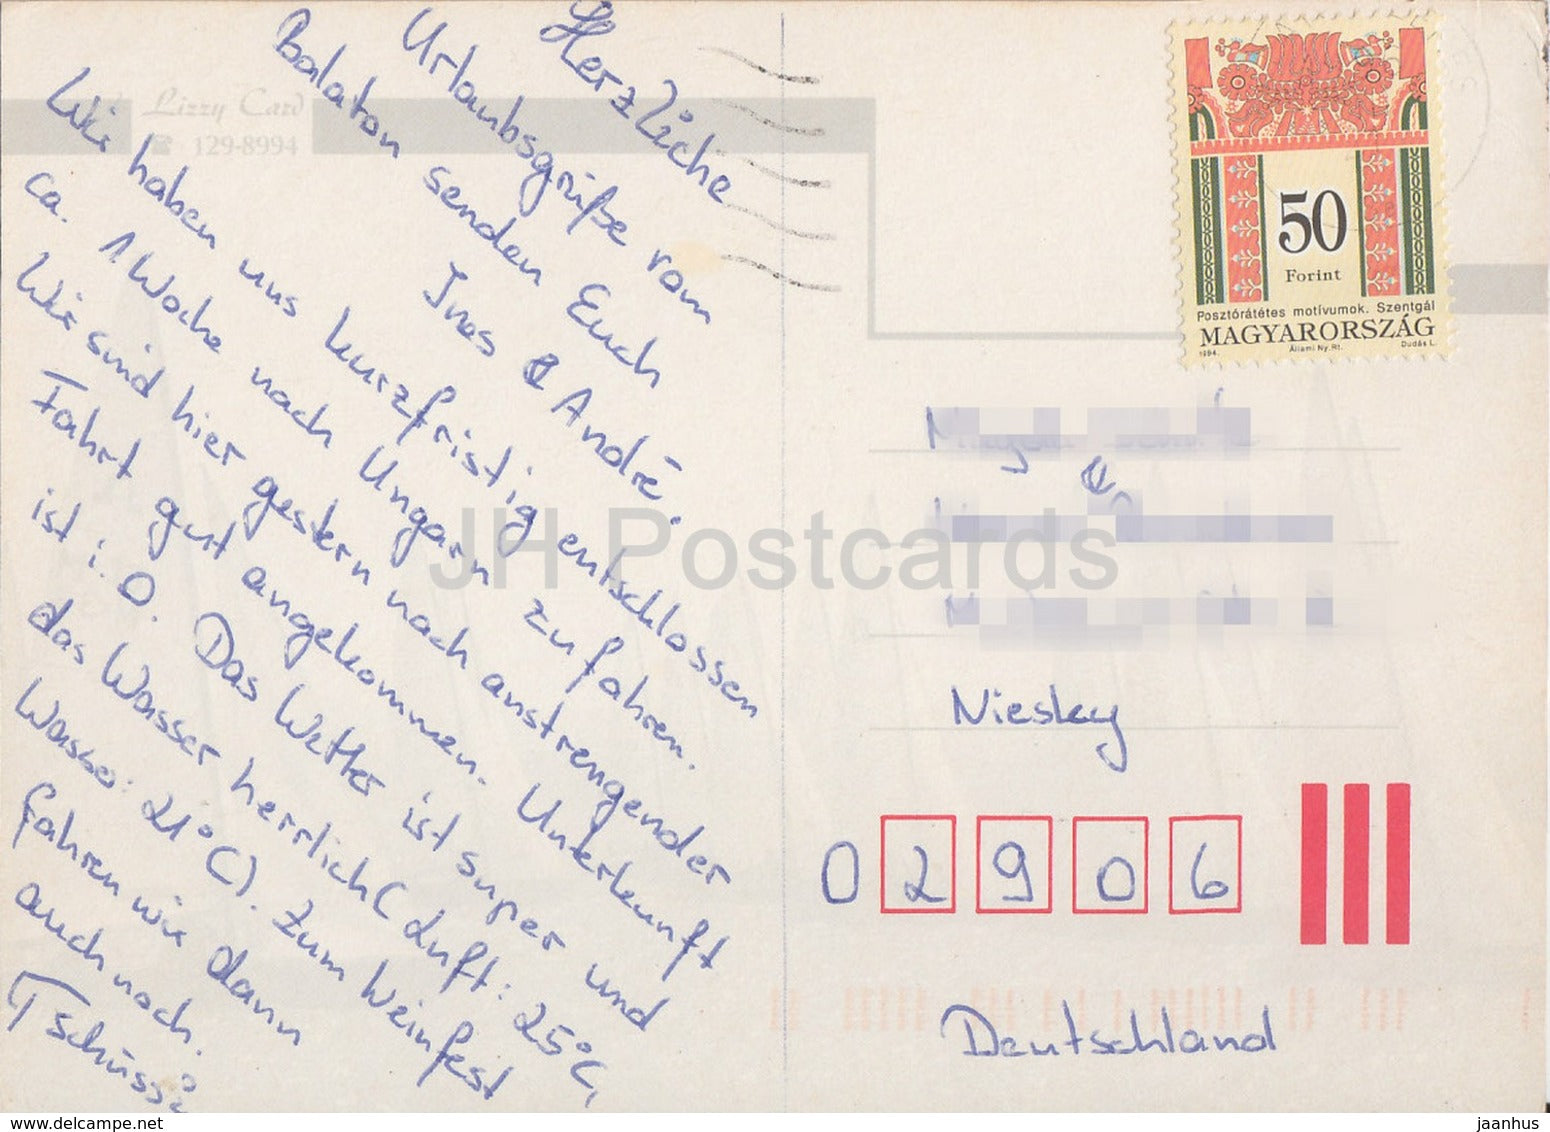 Herzliche
Urlaubsgrüße vom
Balaton senden Euch
Ines & André.
Wir haben uns kurzfristig entschlossen
ca. 1 Woche nach Ungarn zu fahren.
Wir sind hier gestern nach anstrengender
Fahrt gut angekommen. Unterkunft
ist i. O. Das Wetter ist super und
das Wasser herrlich (Luft: 25°C,
Wasser: 21°C). Zum Weinfest
fahren wir dann
auch noch.
Tschüssi
Lizzy Card
☎ 129-8994
50
Forint
Posztórátétes motívumok. Szentgál
MAGYARORSZÁG
1994. Állami Ny. Rt. Dudás L.
Niesky
0 2 9 0 6
Deutschland
JH Postcards
www.delcampe.net
jaanhus